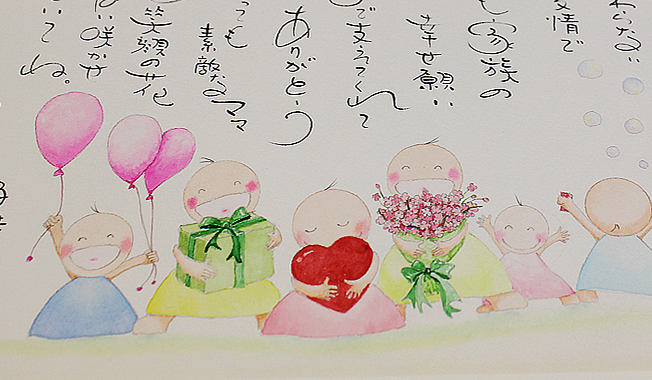 わらない
情で
も家族の
幸せ願い
で支えてくれて
ありがとう
っても
素敵なママ
笑顔の花
咲かせ
いてね。